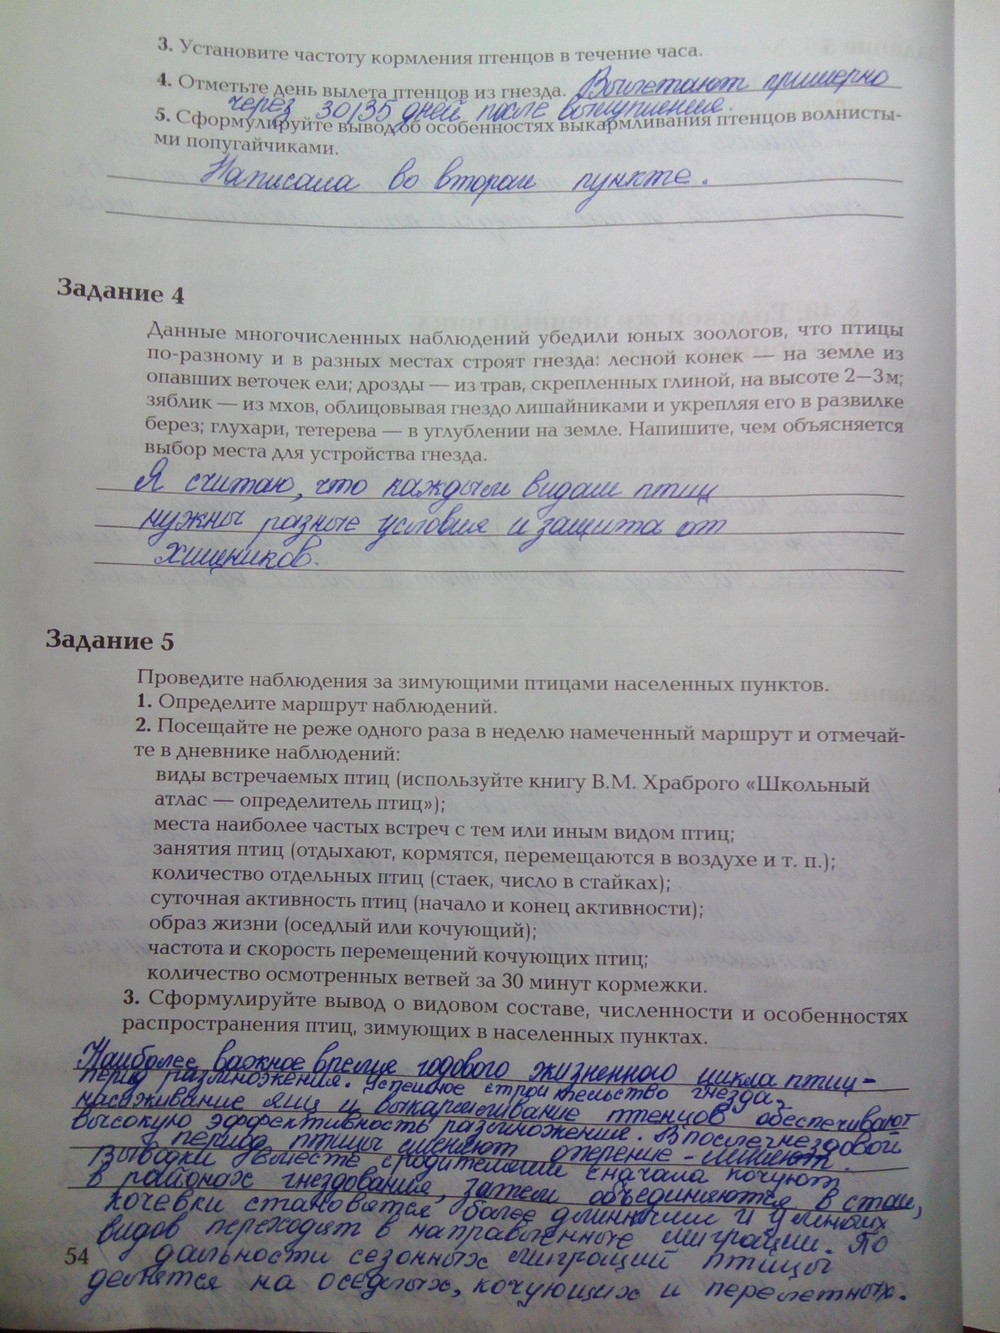 3. Установите частоту кормления птенцов в течение часа.
4. Отметьте день вылета птенцов из гнезда. Вылетают примерно
через 30/35 дней после вылупления.
5. Сформулируйте вывод об особенностях выкармливания птенцов волнисты-
ми попугайчиками.
Написала во втором пункте.
Задание 4
Данные многочисленных наблюдений убедили юных зоологов, что птицы
по-разному и в разных местах строят гнезда: лесной конек — на земле из
опавших веточек ели; дрозды — из трав, скрепленных глиной, на высоте 2—3 м;
зяблик — из мхов, облицовывая гнездо лишайниками и укрепляя его в развилке
берез; глухари, тетерева — в углублении на земле. Напишите, чем объясняется
выбор места для устройства гнезда.
Я считаю, что каждым видам птиц
нужны разные условия и защита от
хищников.
Задание 5
Проведите наблюдения за зимующими птицами населенных пунктов.
1. Определите маршрут наблюдений.
2. Посещайте не реже одного раза в неделю намеченный маршрут и отмечай-
те в дневнике наблюдений:
виды встречаемых птиц (используйте книгу В.М. Храброго «Школьный
атлас — определитель птиц»);
места наиболее частых встреч с тем или иным видом птиц;
занятия птиц (отдыхают, кормятся, перемещаются в воздухе и т. п.);
количество отдельных птиц (стаек, число в стайках);
суточная активность птиц (начало и конец активности);
образ жизни (оседлый или кочующий);
частота и скорость перемещений кочующих птиц;
количество осмотренных ветвей за 30 минут кормежки.
3. Сформулируйте вывод о видовом составе, численности и особенностях
распространения птиц, зимующих в населенных пунктах.
Наиболее важное время годового жизненного цикла птиц -
период размножения. Успешное строительство гнезда,
насиживание яиц и выкармливание птенцов обеспечивают
высокую эффективность размножения. В послегнездовой
период птицы сменяют оперение - линяют.
Выводки вместе с родителями сначала кочуют
в районах гнездования, затем объединяются в стаи,
кочевки становятся более длинными и у
видов переходят в направленные миграции. По
дальности сезонных миграций птицы
делятся на оседлых, кочующих и перелетных.
54